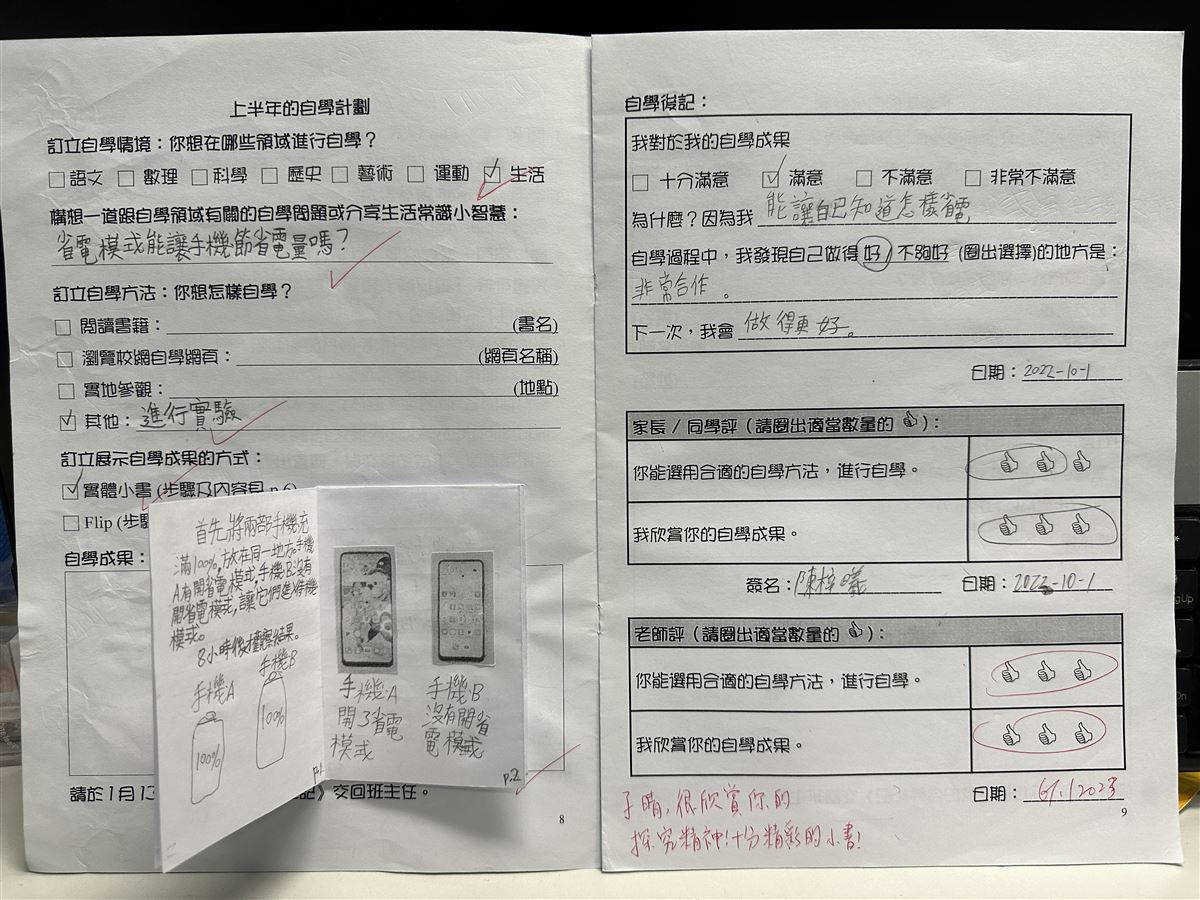 上半年的自學計劃
訂立自學情境：你想在哪些領域進行自學？
□語文 □數理 □科學 □歷史 □藝術 □運動 ☑生活
構想一道跟自學領域有關的自學問題或分享生活常識小智慧：
省電模式能讓手機節省電量嗎？
訂立自學方法：你想怎樣自學？
□ 閱讀書籍：(書名)
□ 瀏覽校網自學網頁：(網頁名稱)
□ 實地參觀：(地點)
☑ 其他：進行實驗
訂立展示自學成果的方式：
☑ 實體小書 (步驟及內容見 p.6)
□ Flip (步驟
自學成果：
首先,將兩部手機充
滿100%,放在同一地方。手機
A有開省電模式,手機B沒有
開省電模式,讓它們進入待機
模式。
8小時後觀察結果。
手機A
手機B
100%
100%
p.1
手機A
開了省電
模式
手機B
沒有開省
電模式
p.2
請於1月13
》交回班主任。
8
自學後記：
我對於我的自學成果
□ 十分滿意 ☑ 滿意 □ 不滿意 □ 非常不滿意
為什麼？因為我 能讓自己知道怎樣省電
自學過程中，我發現自己做得好/不夠好 (圈出選擇)的地方是：
非常合作。
下一次，我會 做得更好。
日期：2022-10-1
家長 / 同學評 (請圈出適當數量的 👍)：
你能選用合適的自學方法，進行自學。 👍 👍 👍
我欣賞你的自學成果。 👍 👍 👍
簽名：陳梓曦 日期：2022-10-1
老師評 (請圈出適當數量的 👍)：
你能選用合適的自學方法，進行自學。 👍 👍 👍
我欣賞你的自學成果。 👍 👍 👍
日期：6.1.2023
子晴,很欣賞你的
探究精神!十分精彩的小書!
9